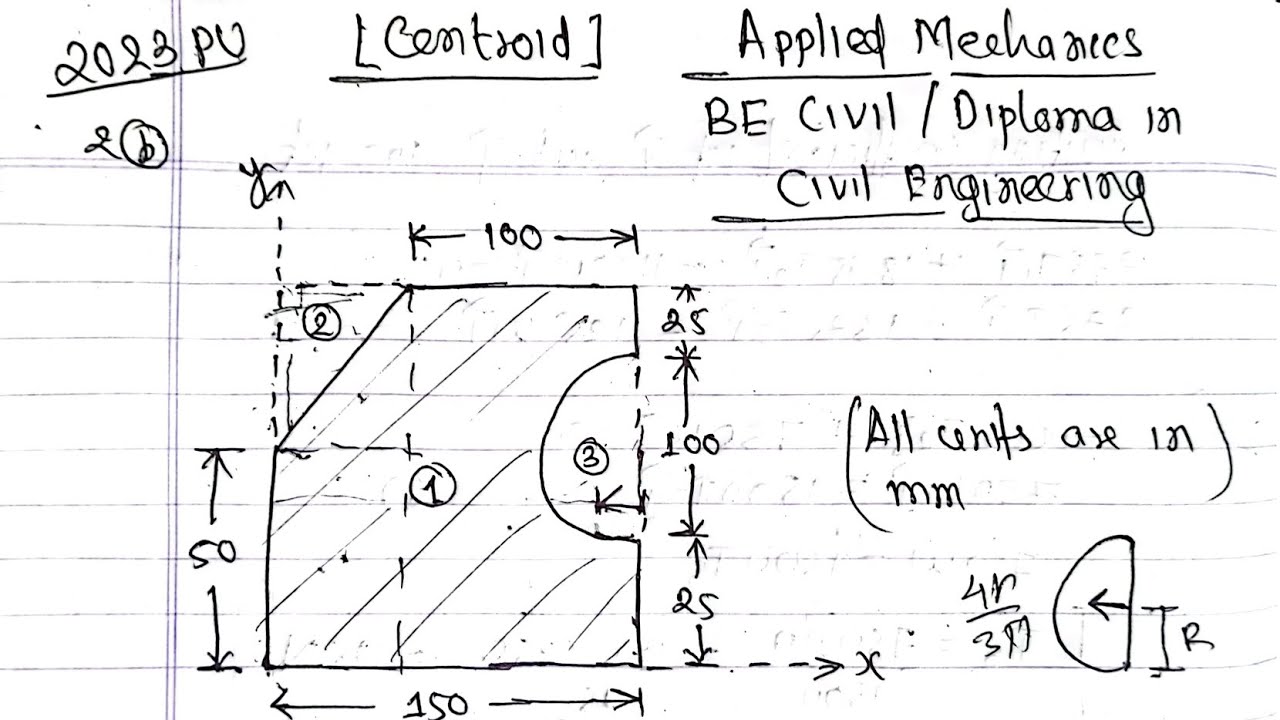 2023 PU [Centroid] Applied Mechanics
2(b) BE Civil / Diploma in
Civil Engineering
y
100
2
25
3
100
1
(All units are in
mm)
50
25
4r
3π
R
x
150